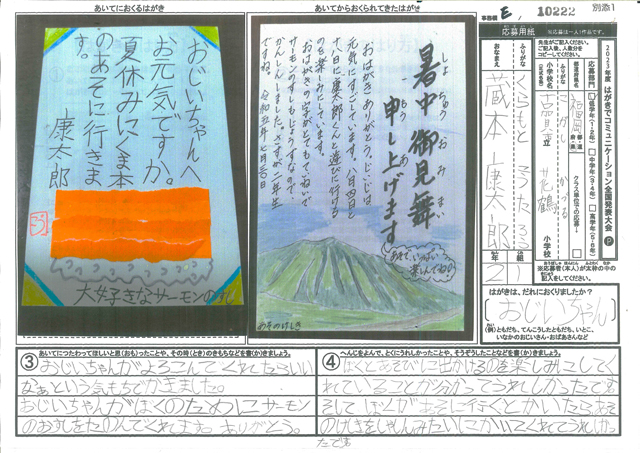 別添1
事務欄 E, 10222
あいてにおくるはがき
おじいちゃんへ
お元気ですか。
夏休みにくま本
のあそに行きま
す。
康太郎
大好きなサーモンのすし
あいてからおくられてきたはがき
しょちゅうおみまい
暑中御見舞
もうあ
申し上げます
おはがきありがとう。じいじは
元気にすごしています。八月四日と
十八日に康太郎くんと遊びに行ける
のを楽しみにしています。
令和五年七月
あそのけしき
応募用紙
※応募は一人1作品です。
2023年度 はがきでコミュニケーション全国発表大会
応募部門
低学年(1・2年)
中学年(3・4年)
高学年(5・6年)
クラス単位での応募
都道府県名
福岡
小学校名
古賀市立
花鶴
小学校
ふりがな
くらもと こうたろう
おなまえ
蔵本 康太郎
2年
1組
※応募者(本人)が太枠の中の
記入をしてください。
はがきは、だれにおくりましたか?
おじいちゃん
(例)ともだち、てんこうしたともだち、いとこ、
いなかのおじいさん・おばあさんなど
③ あいてにつたわってほしいと思(おも)ったことや、その時(とき)のきもちなどを書(か)きましょう。
おじいちゃんがよろこんでくれたらいい
なぁという気もちでかきました。
おじいちゃんがぼくのためにサーモン
のおすしをたのんでくれます。ありがとう。
④ へんじをよんで、とくにうれしかったことや、そうぞうしたことなどを書(か)きましょう。
ぼくとあそびに出かけるのを楽しみにしてく
れていることが分かってうれしかったです。
そしてぼくがあそに行くとかいたらあそ
のけしきをしゃしんみたいにかいてくれてうれしかっ
たです